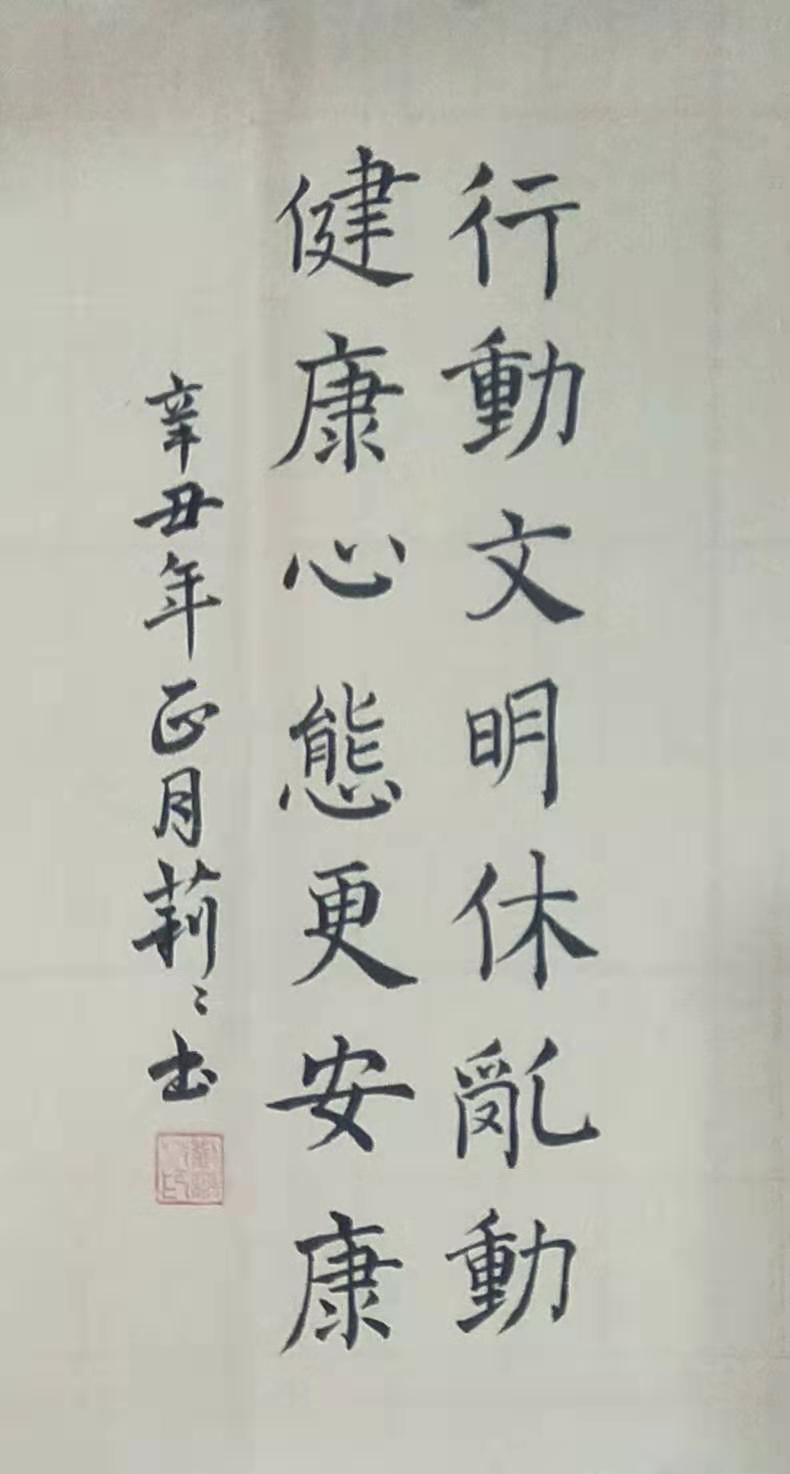 行動文明休亂動
健康心態更安康
辛丑年正月莉〻书